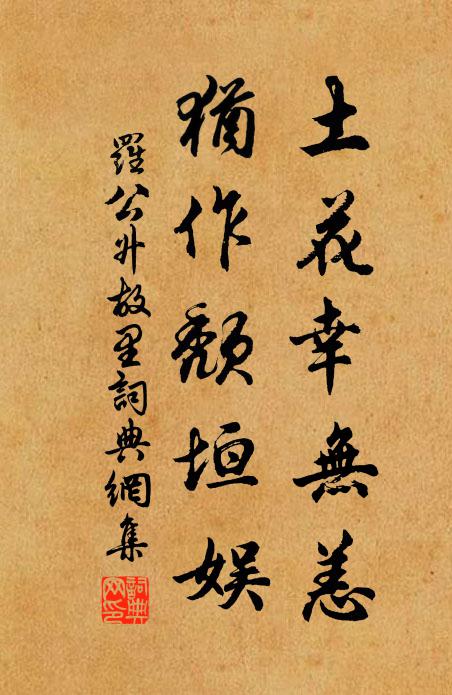 土花幸無恙
猶作頹垣娛
羅公升故里詞典網集
詞典網印